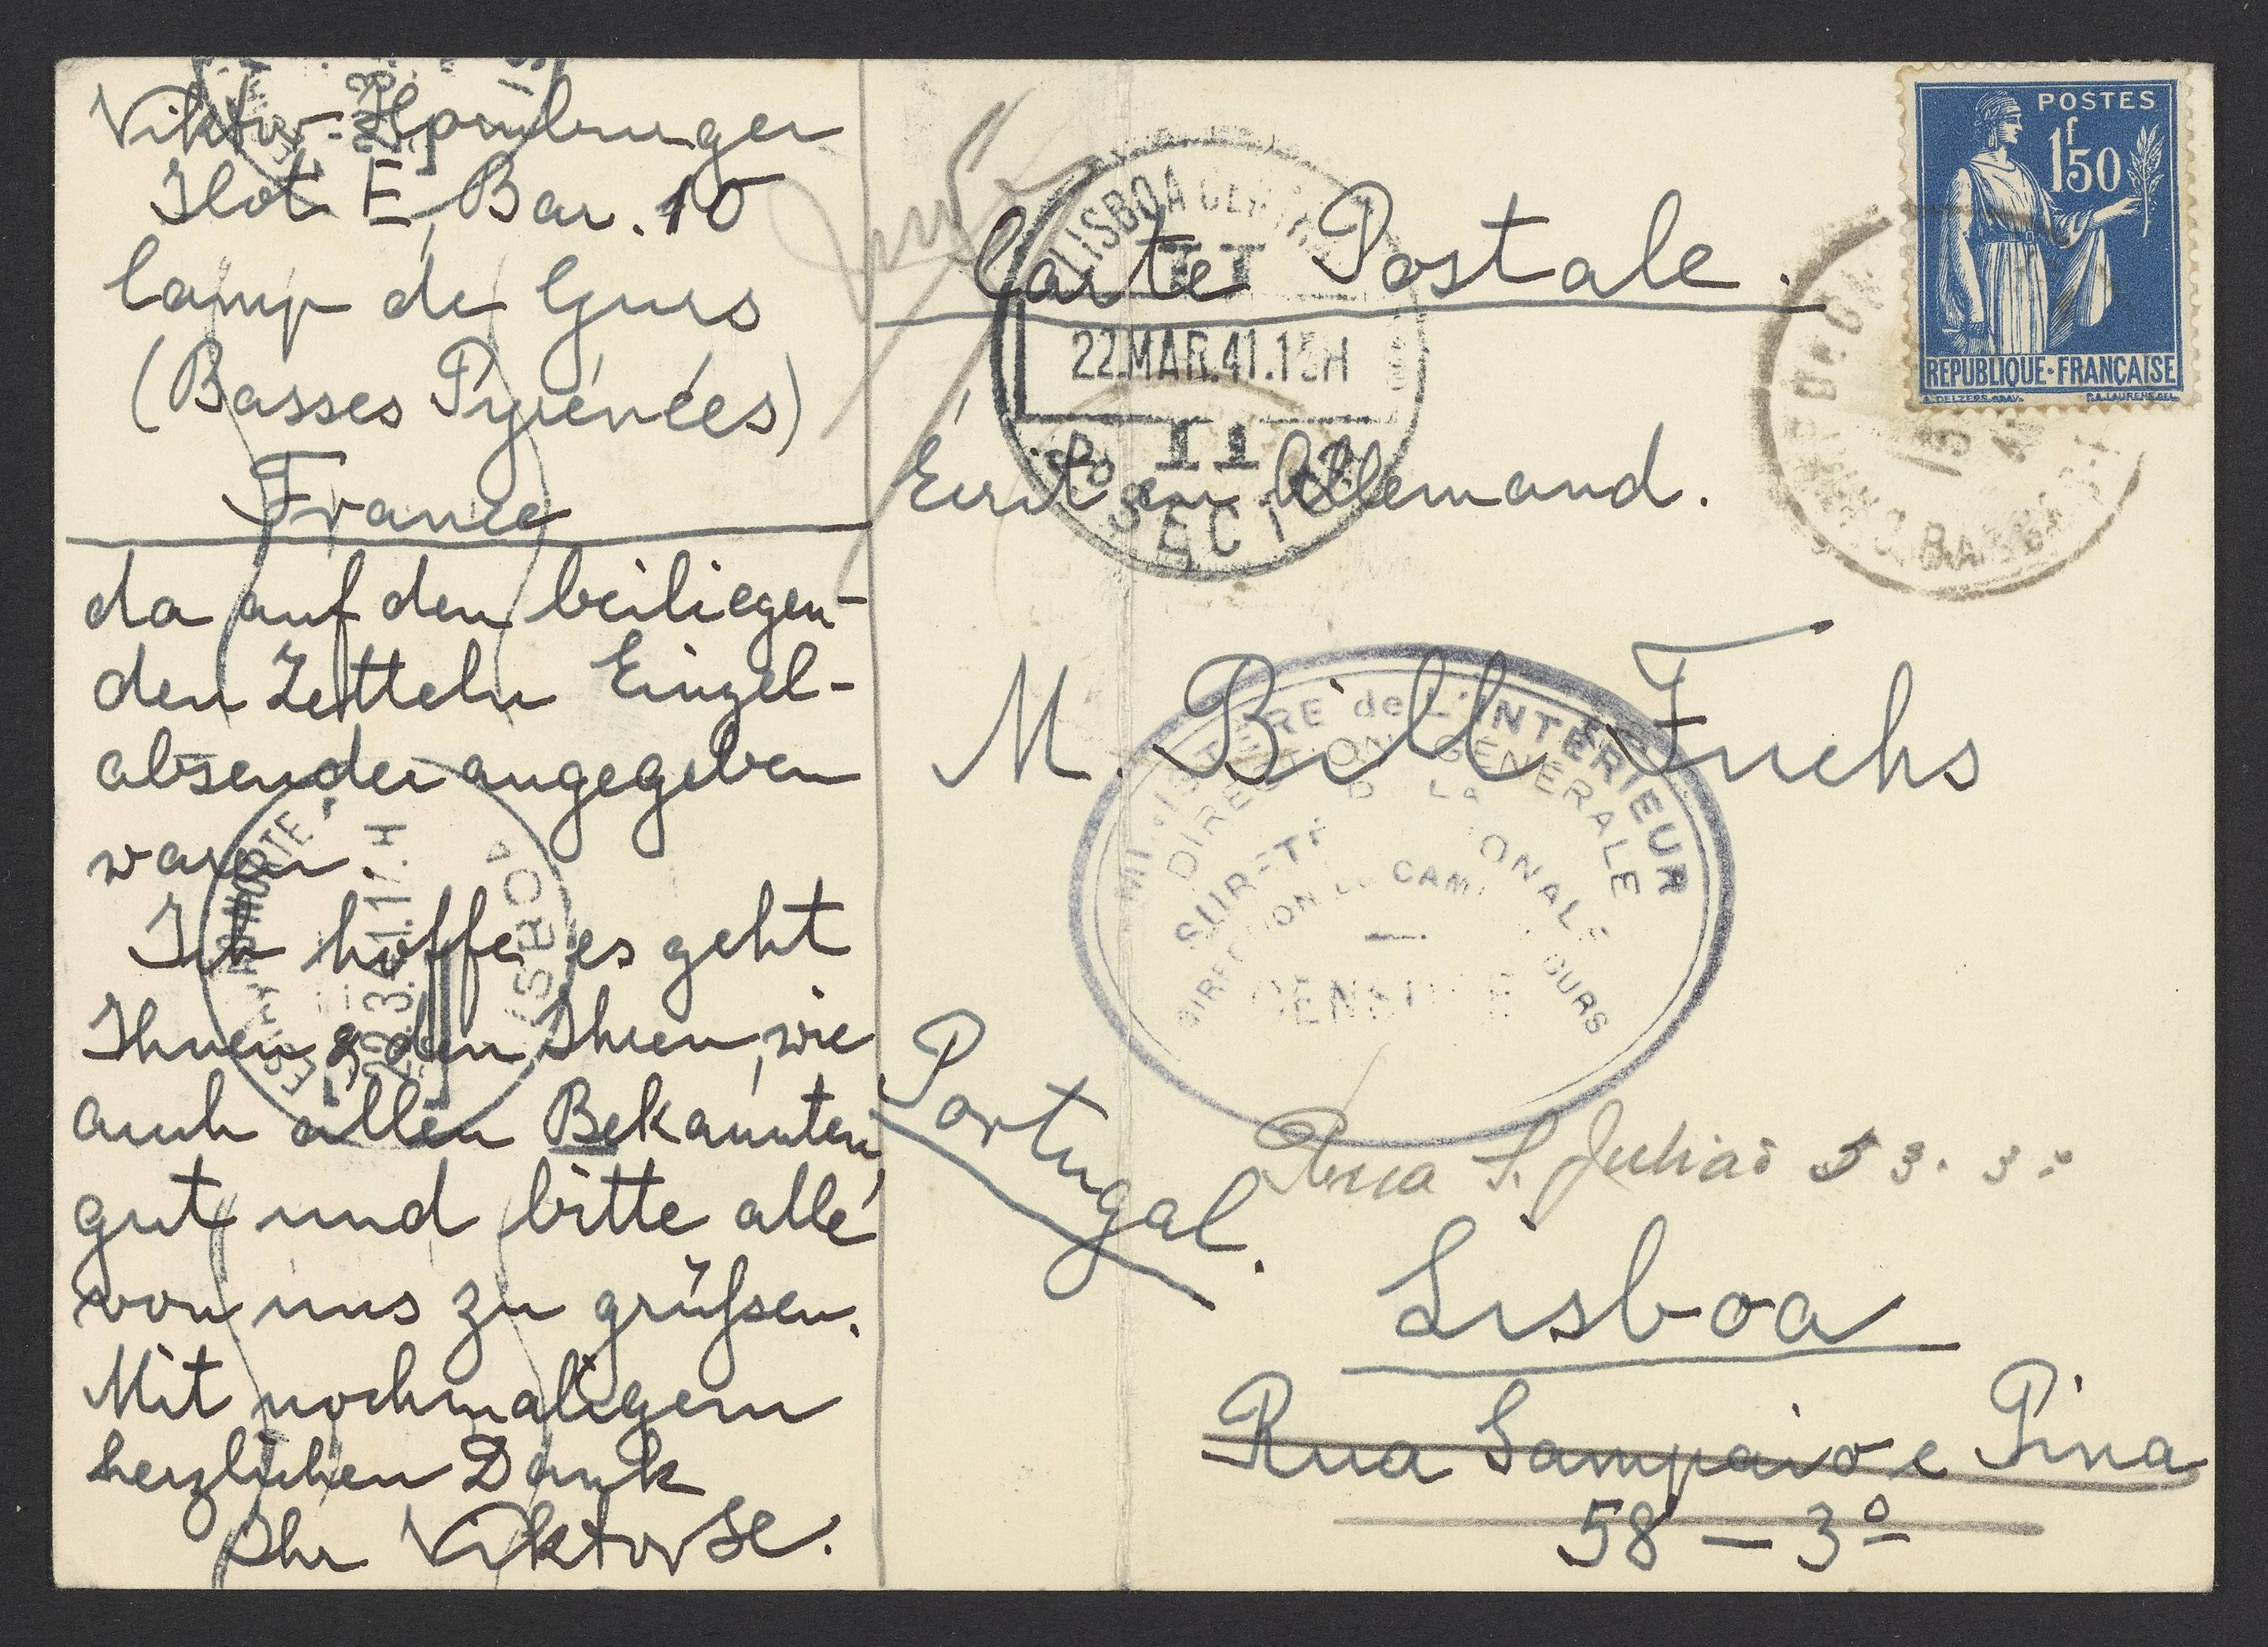 Viktor Homburger
Ilot E, Bar. 10
Camp de Gurs
(Basses Pyrénées)
France
da auf den beiliegen-
den Zetteln Einzel-
absender angegeben
waren.
Ich hoffe, es geht
Ihnen & den Ihren, wie
auch allen Bekannten,
gut und bitte alle
von uns zu grüßen.
Mit nochmaligem
herzlichen Dank
Ihr Viktor
Carte Postale.
Écrit en Allemand.
M. Bill Fuchs
Portugal.
Rua S. Julião 53. 3º
Lisboa
Rua Sampaio e Pina
58 – 3º
POSTES
1f50
REPUBLIQUE·FRANÇAISE
LISBOA CENTRAL
22.MAR.41.15H
SECÇÃO
MINISTÈRE de L'INTÉRIEUR
DIRECTION GÉNÉRALE
DE La
SURETÉ NATIONALE
DIRECTION du CAMP de GURS
CENSURE
LISBOA